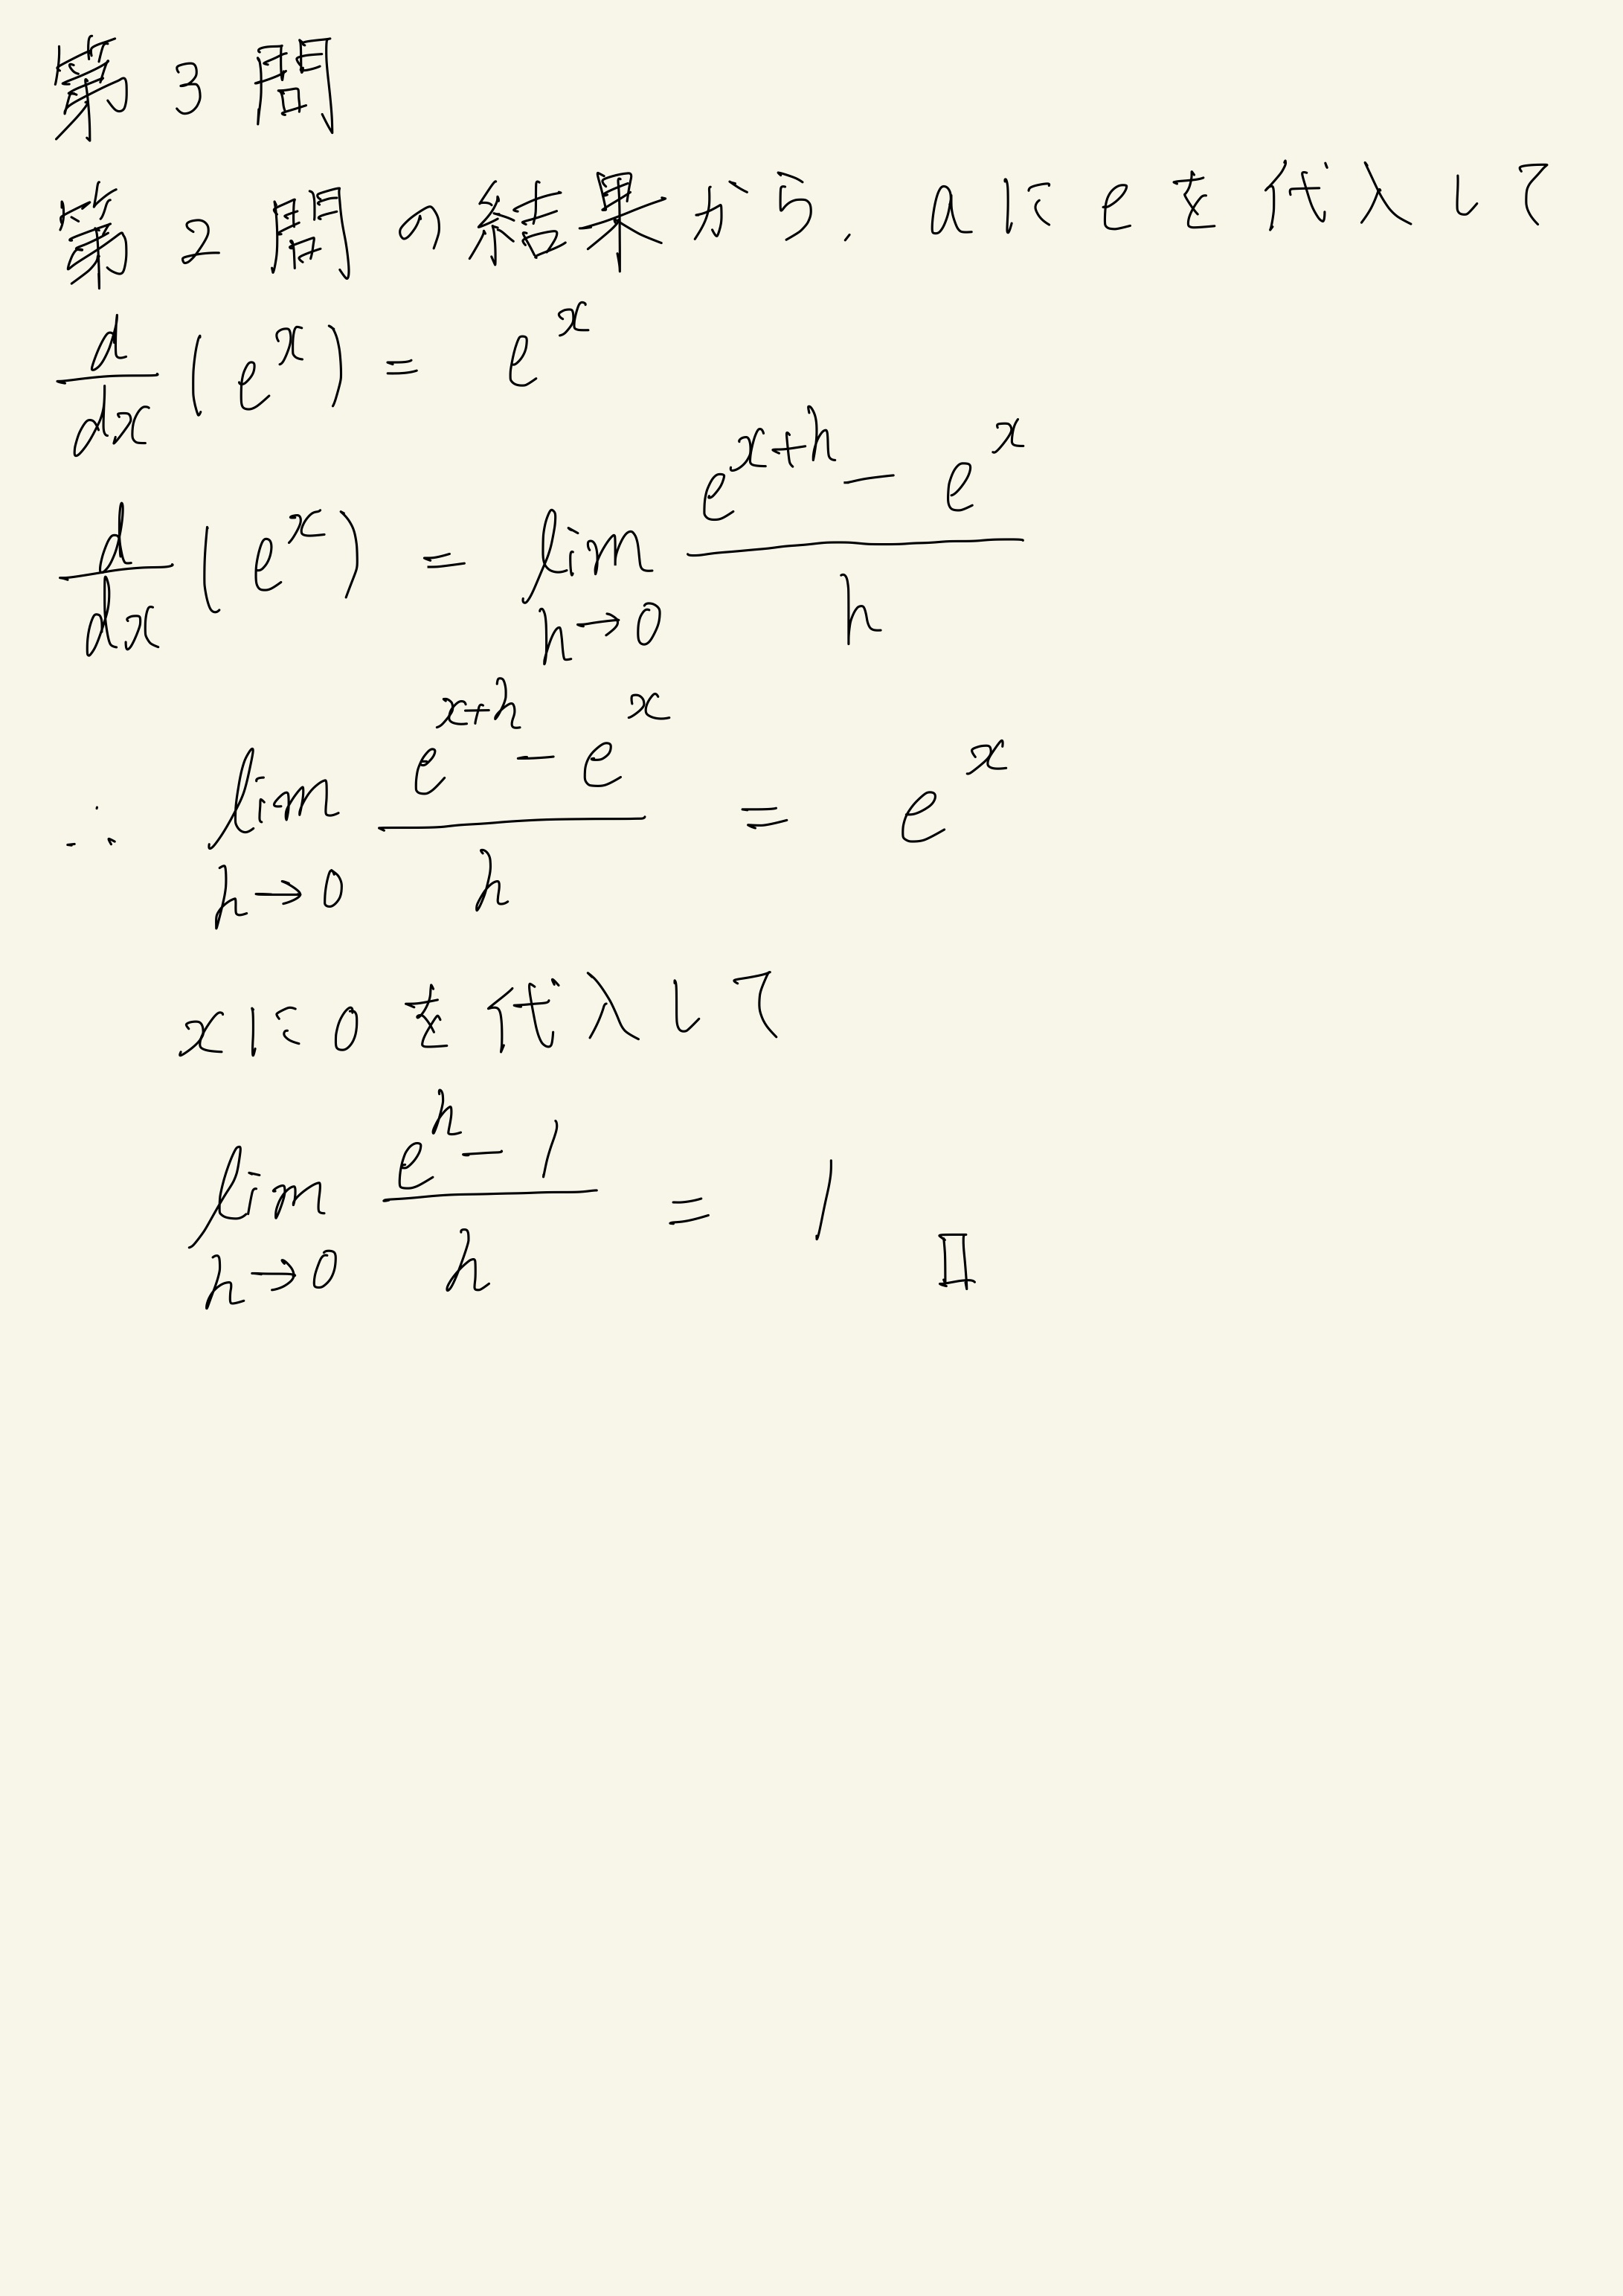 第3問
第2問の結果から, aにeを代入して
d/dx (e^x) = e^x
d/dx (e^x) = lim_{h→0} (e^{x+h} - e^x)/h
∴ lim_{h→0} (e^{x+h} - e^x)/h = e^x
xに0を代入して
lim_{h→0} (e^h - 1)/h = 1 □